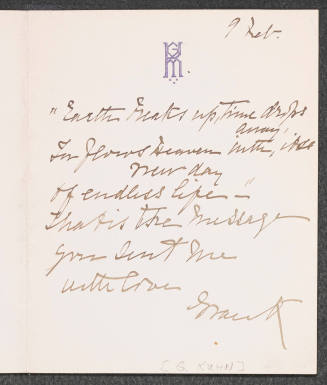 9 Feb.
"Earth breaks up, time drops
away,
In flows Heaven with, its
new day
Of endless life—"
That is the message
you sent me
with love
Grace K
[G. KUHN]